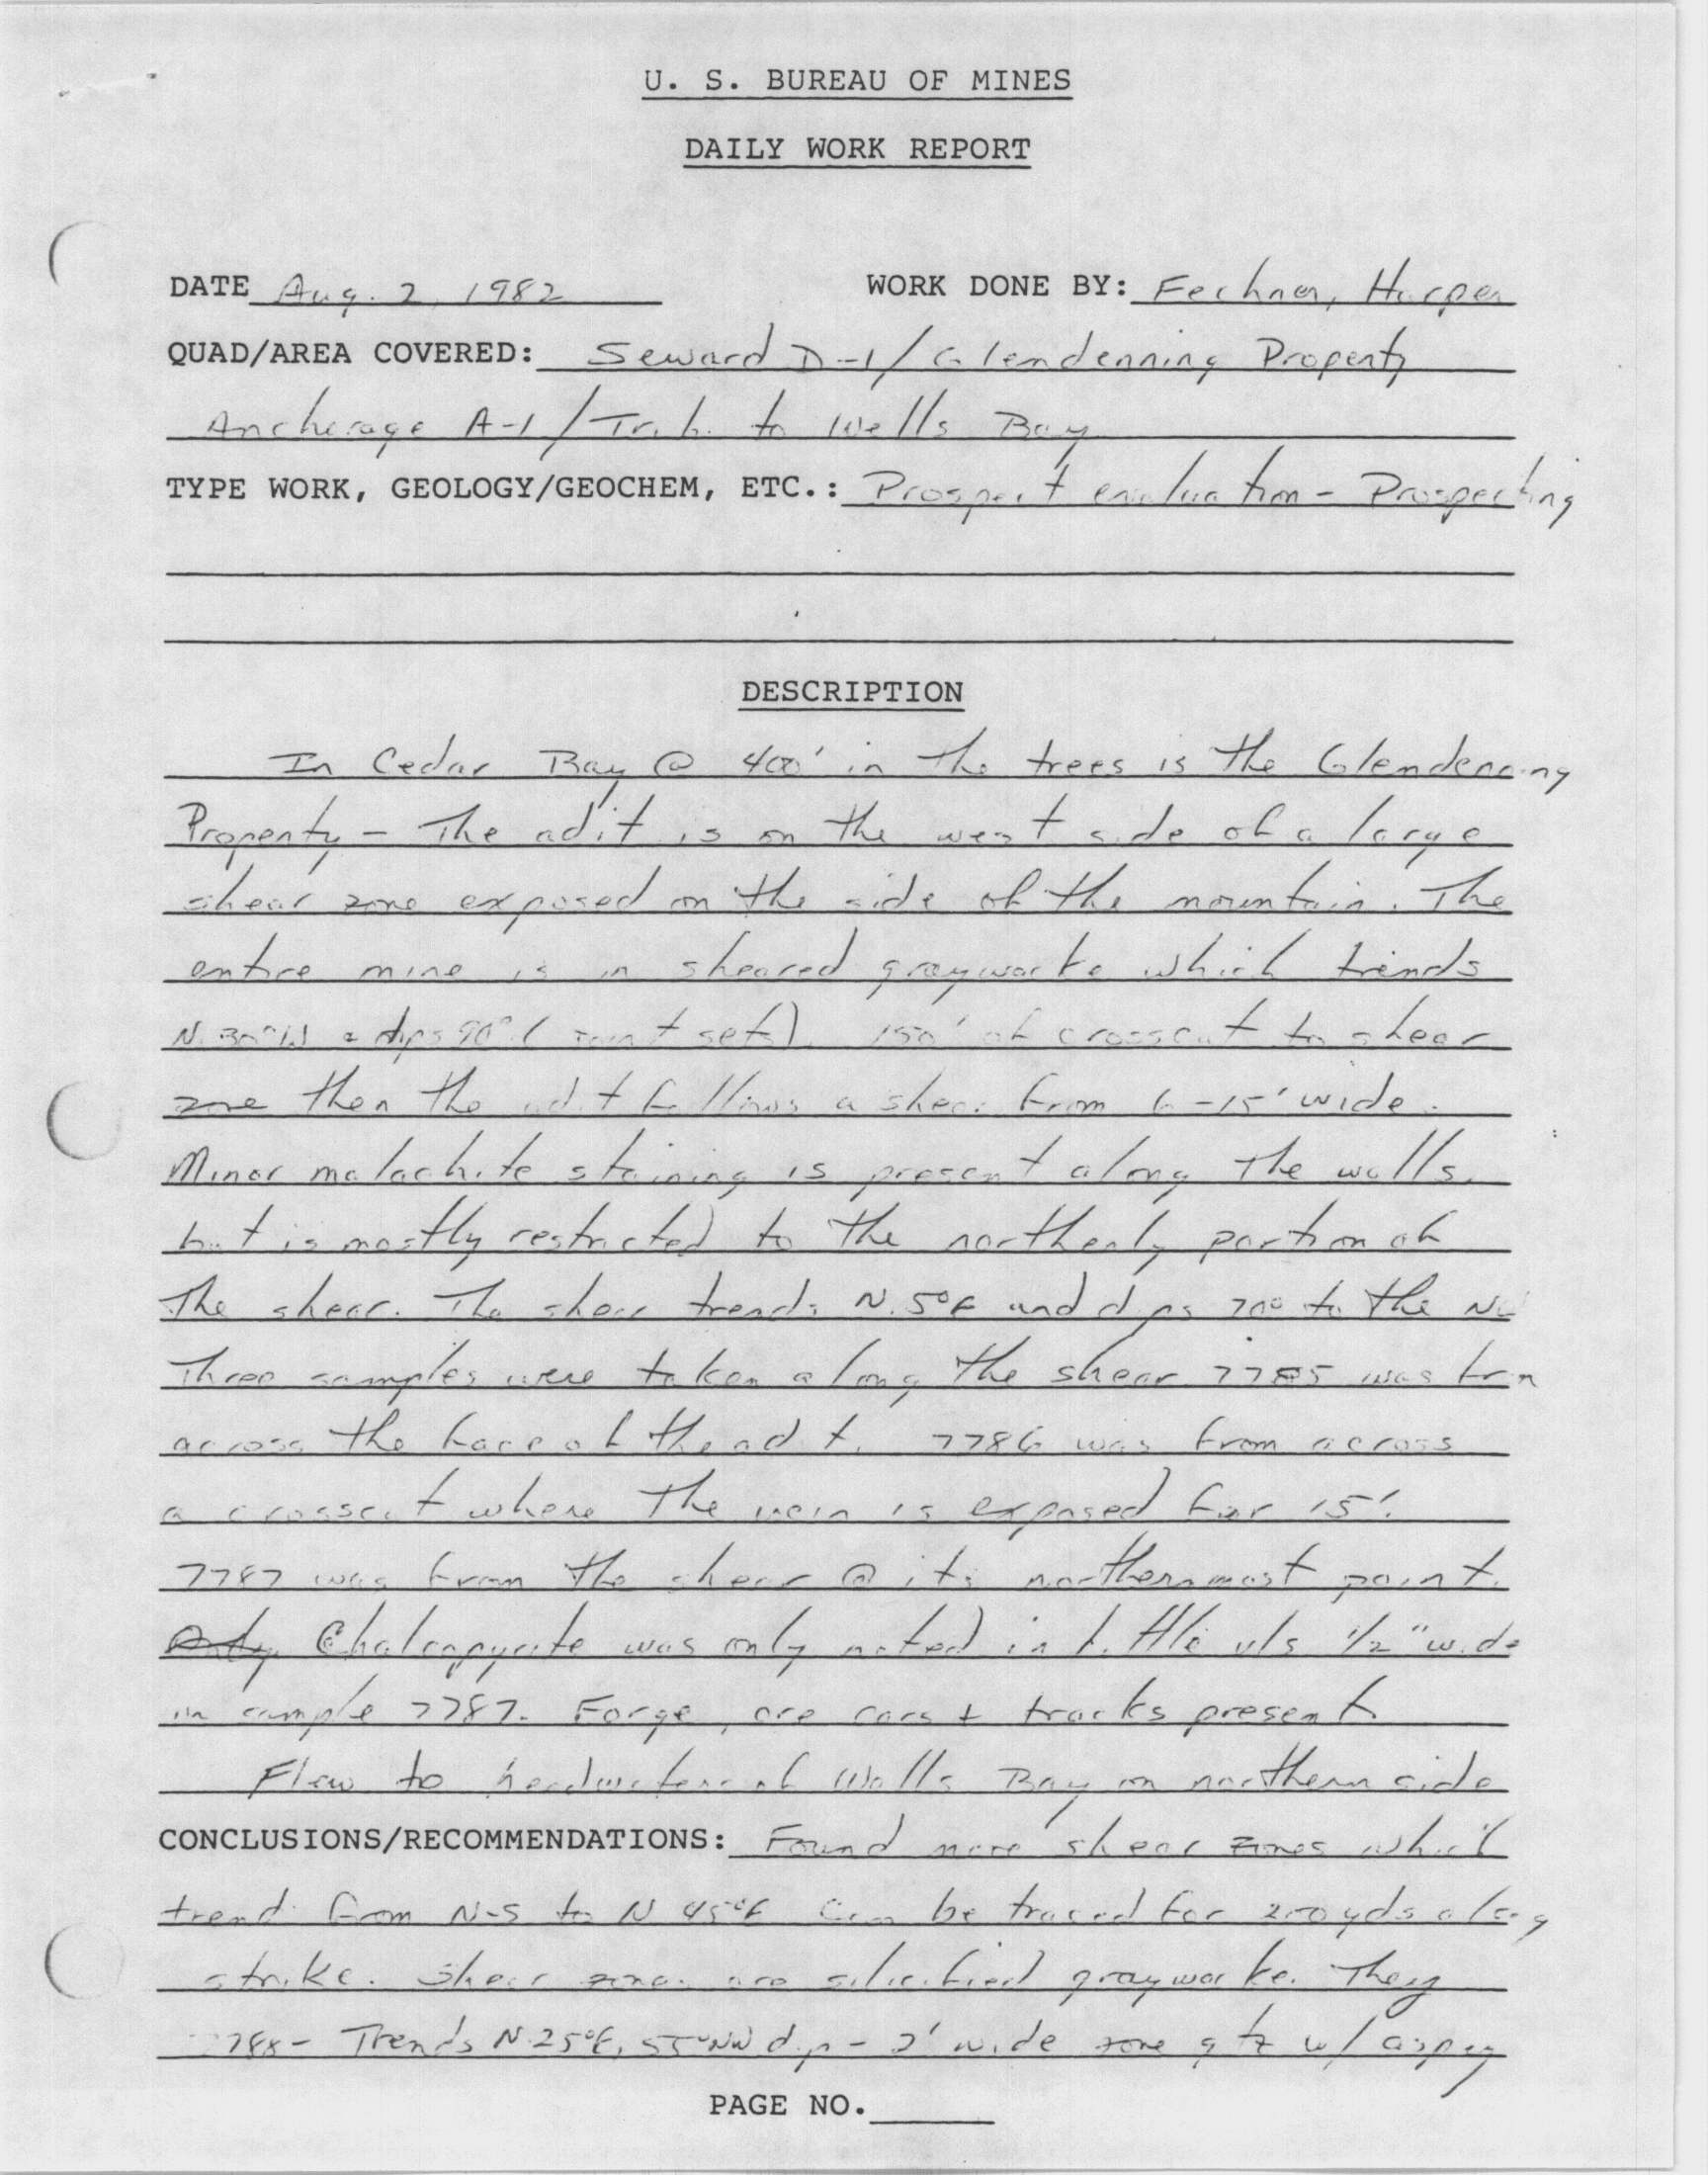 U. S. BUREAU OF MINES
DAILY WORK REPORT
DATE Aug. 2, 1982 WORK DONE BY: Fechner, Harper
QUAD/AREA COVERED: Seward D-1/Glendenning Property
Anchorage A-1/Trib. to Wells Bay
TYPE WORK, GEOLOGY/GEOCHEM, ETC.: Prospect evaluation - Prospecting
DESCRIPTION
In Cedar Bay @ 400' in the trees is the Glendenning
Property - The adit is on the west side of a large
shear zone exposed on the side of the mountain. The
entire mine is in sheared graywacke which trends
N. 30°W & dips 90° (joint set). 150' of crosscut to shear
zone then the adit follows a shear from 6-15' wide.
Minor malachite staining is present along the walls,
but is mostly restricted to the northerly portion of
the shear. The shear trends N. 5°E and dips 70° to the NW
Three samples were taken along the shear 7785 was frm
across the face of the adit. 7786 was from across
a crosscut where the vein is exposed for 15'.
7787 was from the shear @ its northernmost point.
Chalcopyrite was only noted in little vls 1/2" wide
in sample 7787. Forge, ore cars + tracks present
Flew to headwaters of Wells Bay on northern side
CONCLUSIONS/RECOMMENDATIONS: Found more shear zones which
trend from N-S to N 45°E Can be traced for 200 yds along
strike. Shear zones are silicified graywacke. They
788- Trends N 25°E, 55°NW dip - 2' wide zone qtz w/ aspy
PAGE NO.